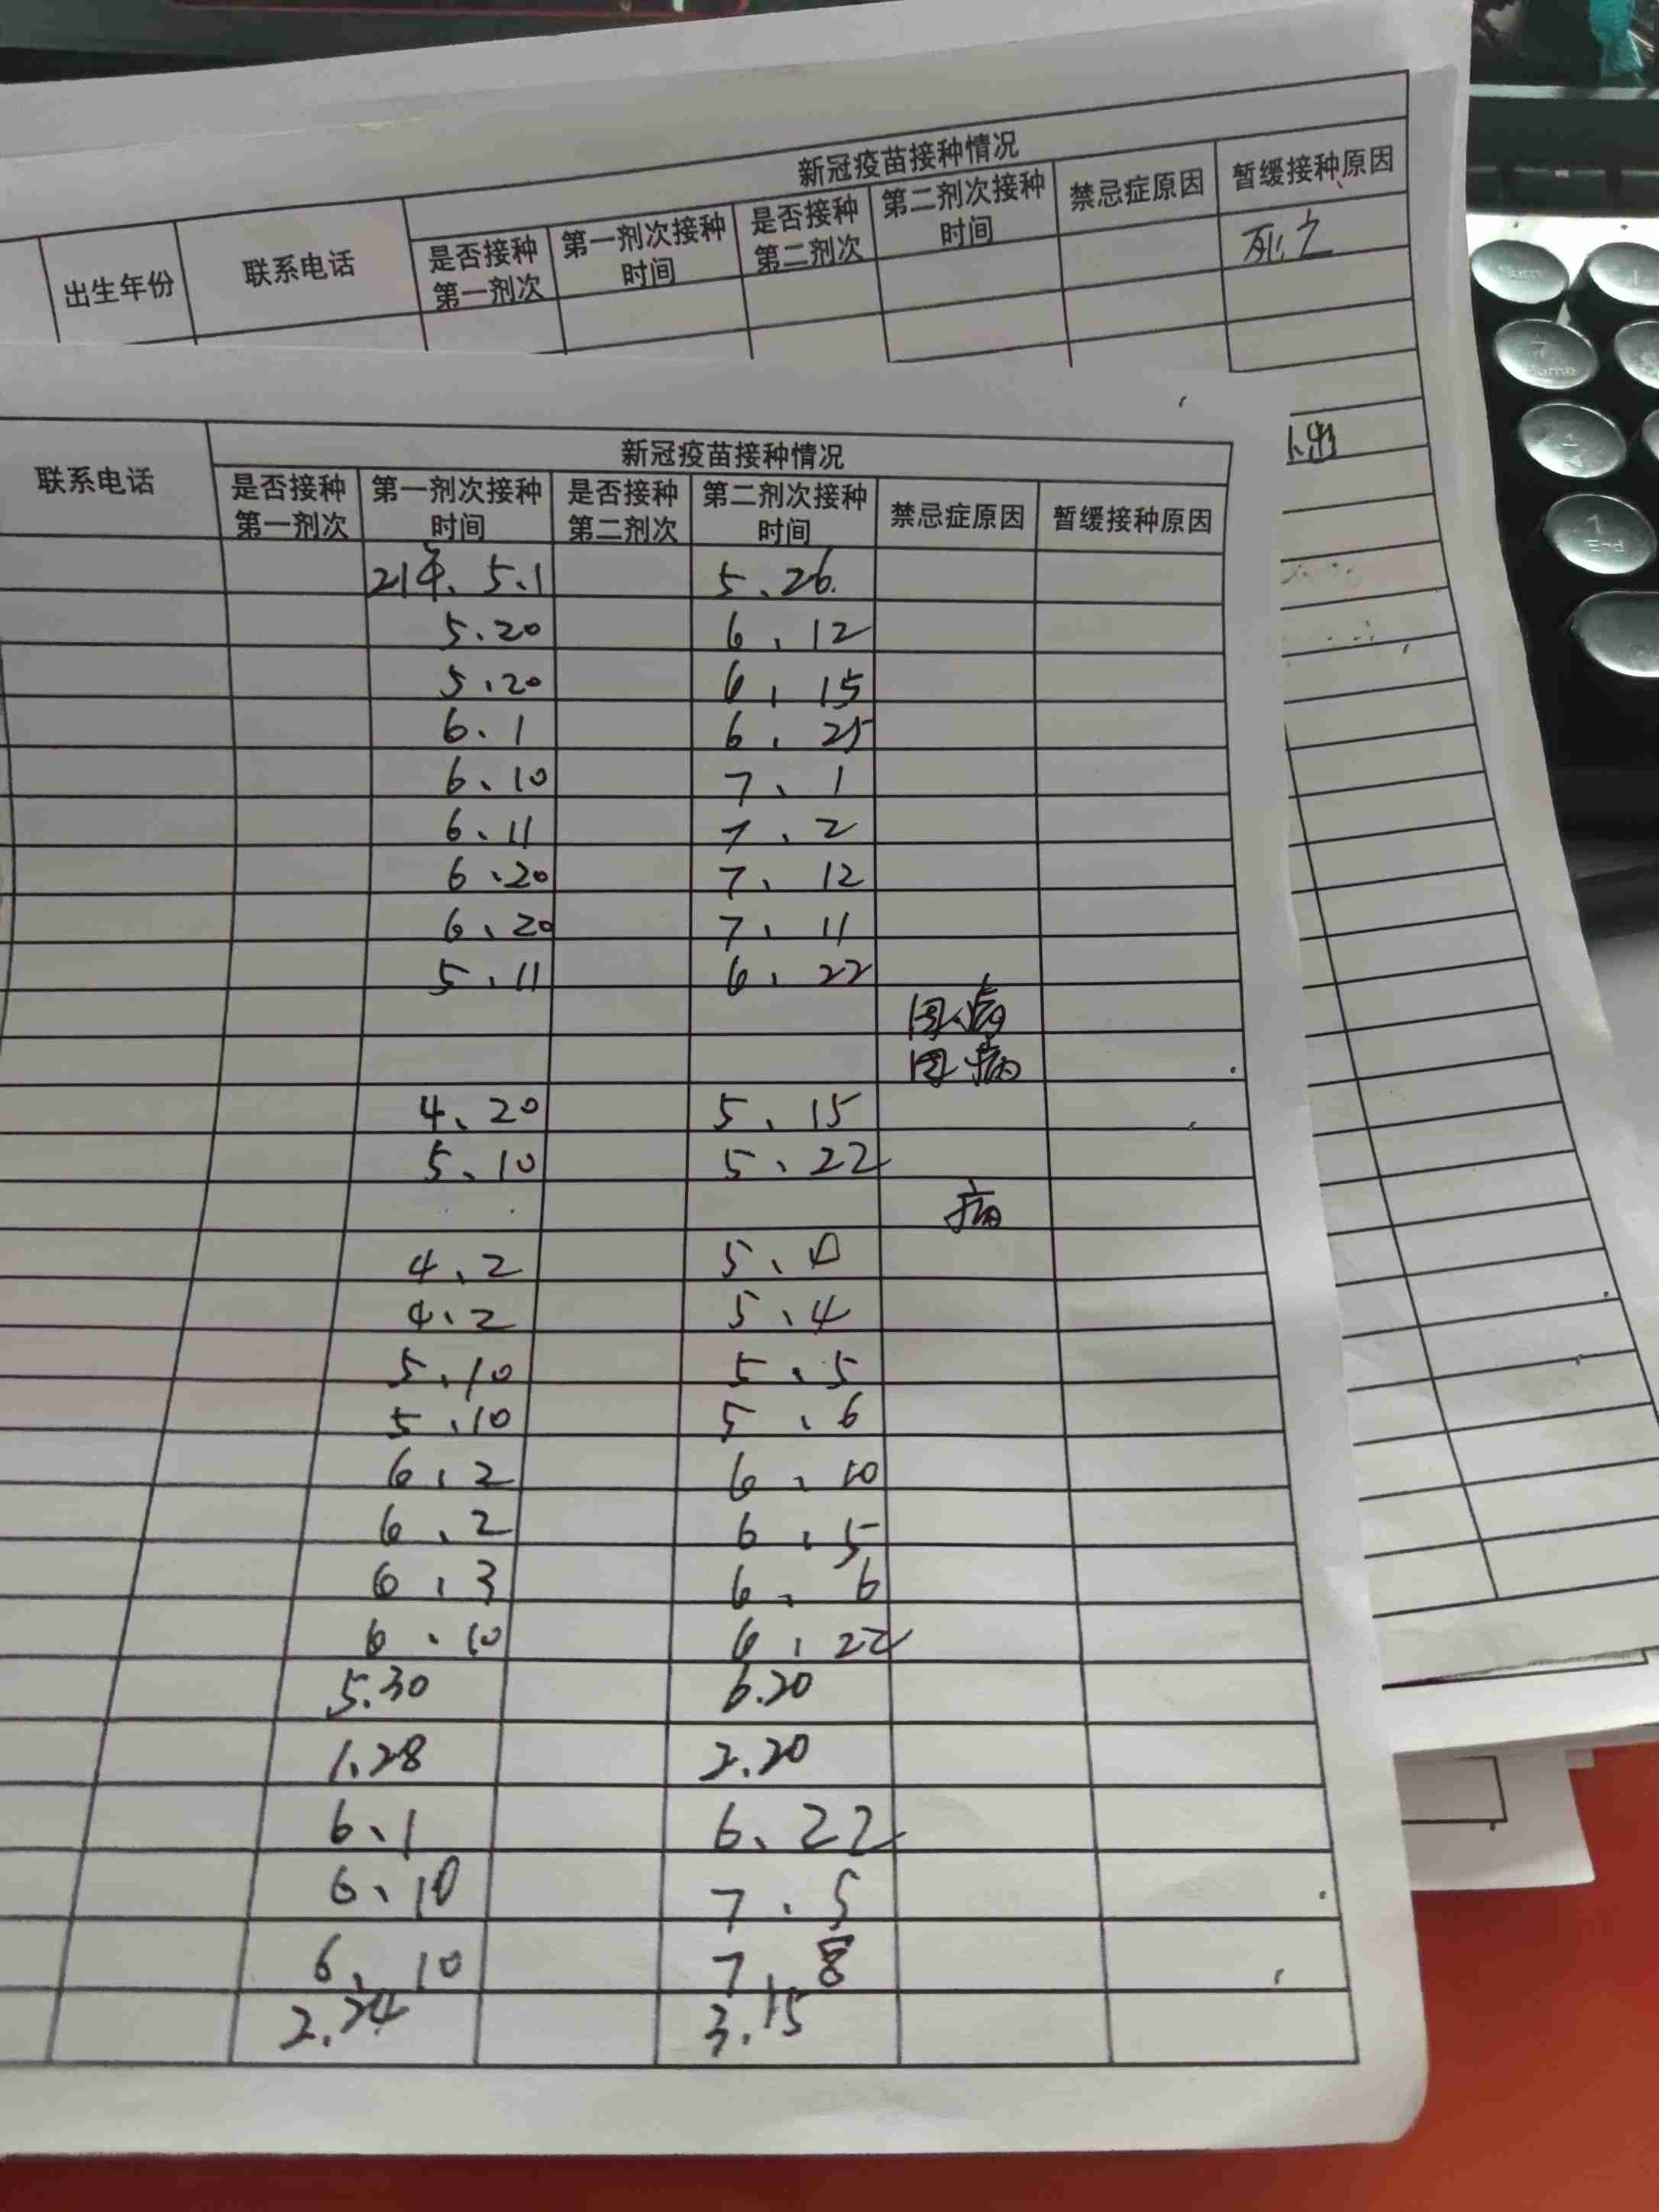 新冠疫苗接种情况
出生年份 联系电话 是否接种第一剂次 第一剂次接种时间 是否接种第二剂次 第二剂次接种时间 禁忌症原因 暂缓接种原因
死亡
新冠疫苗接种情况
联系电话 是否接种第一剂次 第一剂次接种时间 是否接种第二剂次 第二剂次接种时间 禁忌症原因 暂缓接种原因
21年、5、1 5、26.
5、20 6、12
5、20 6、15
6、1 6、25
6、10 7、1
6、11 7、2
6、20 7、12
6、20 7、11
5、11 6、22
因病
因病
4、20 5、15
5、10 5、22
病
4、2 5、
4、2 5、4
5、10 5、5
5、10 5、6
6、2 6、10
6、2 6、5
6、3 6、6
6、10 6、22
5.30 6.20
1.28 2.20
6、1 6、22
6、10 7、5
6、10 7、8
2.24 3.15